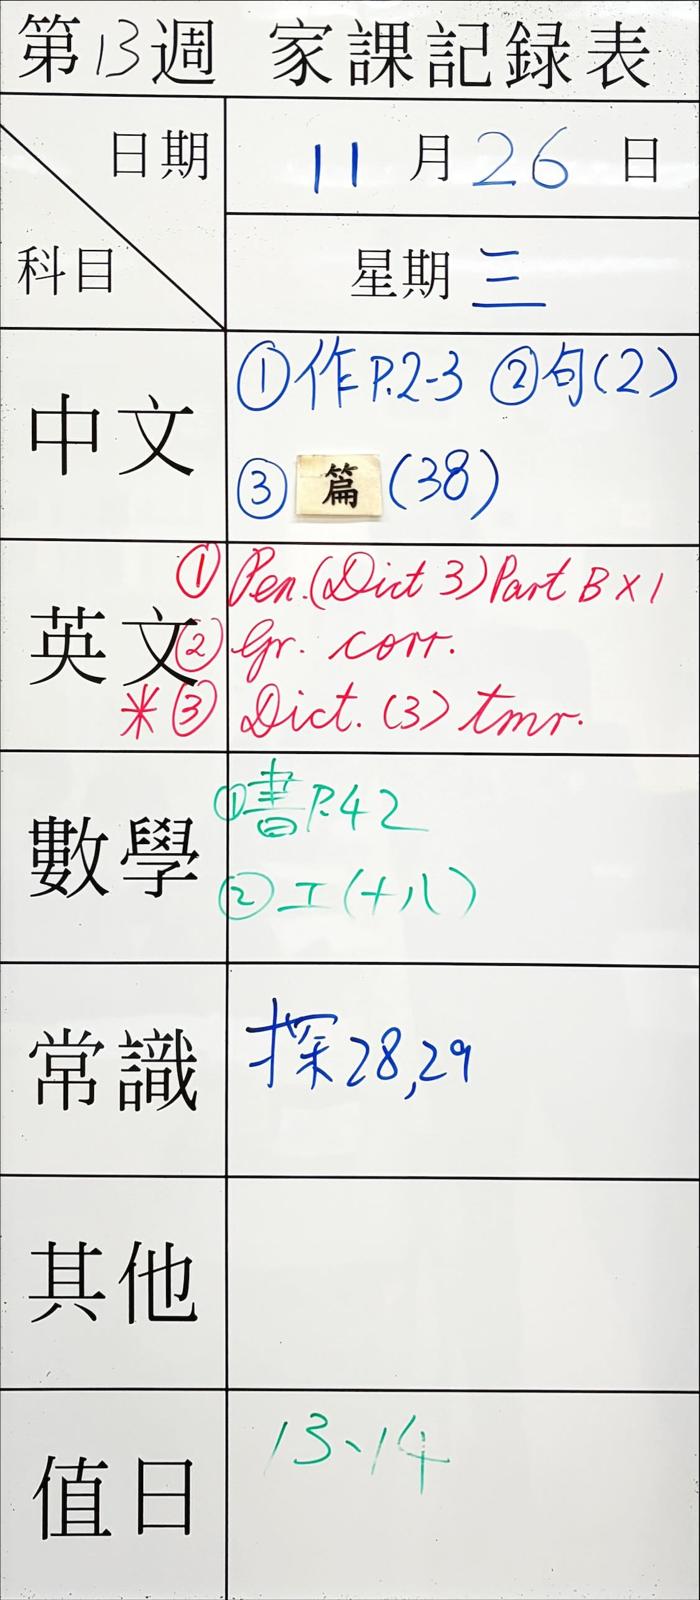 第13週 家課記録表
日期 11月26日
科目 星期三
中文 ①作P.2-3 ②句(2)
③篇(38)
英文 ①Pen.(Dict 3)Part B×1
②Gr. corr.
*③Dict.(3) tmr.
數學 ①書P.42
②工(十八)
常識 探28,29
其他
值日 13、14